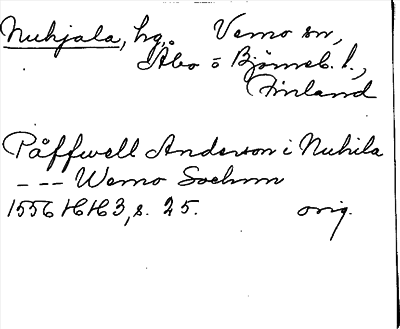 Nuhjala, hg, Vemo sn,
Åbo o Björneb. l.,
Finland
Påffwell Anderson i Nuhila
– – – Wemo Sochnn
1556 HH 3, s. 25. orig.